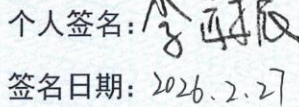 个人签名:
签名日期: 2026.2.27